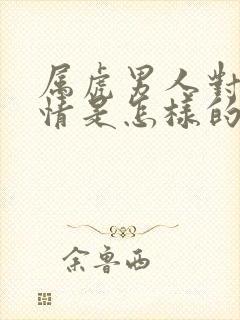 属虎男人對
情是怎樣的
余鲁西